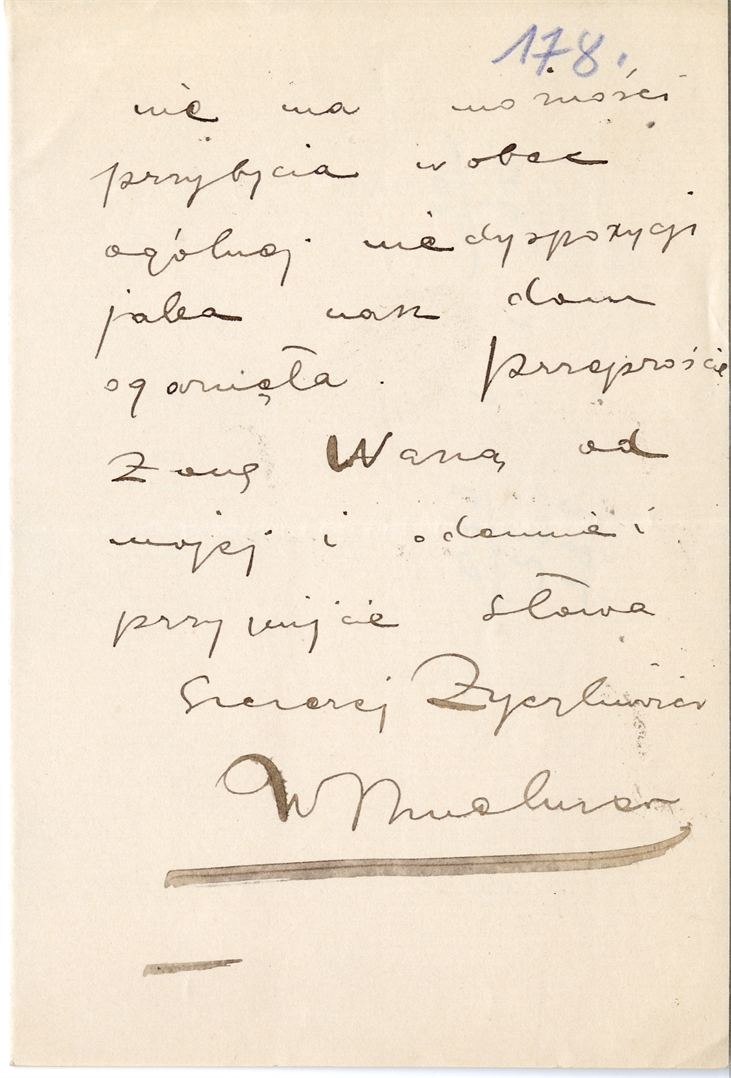 178.
nie ma możności
przybycia wobec
ogólnej niedyspozycji
jaka nasz dom
ogarnęła. Przeproście
Żonę Waszą od
mojej i odemnie i
przyjmijcie słowa
Szczerej Życzliwości
W